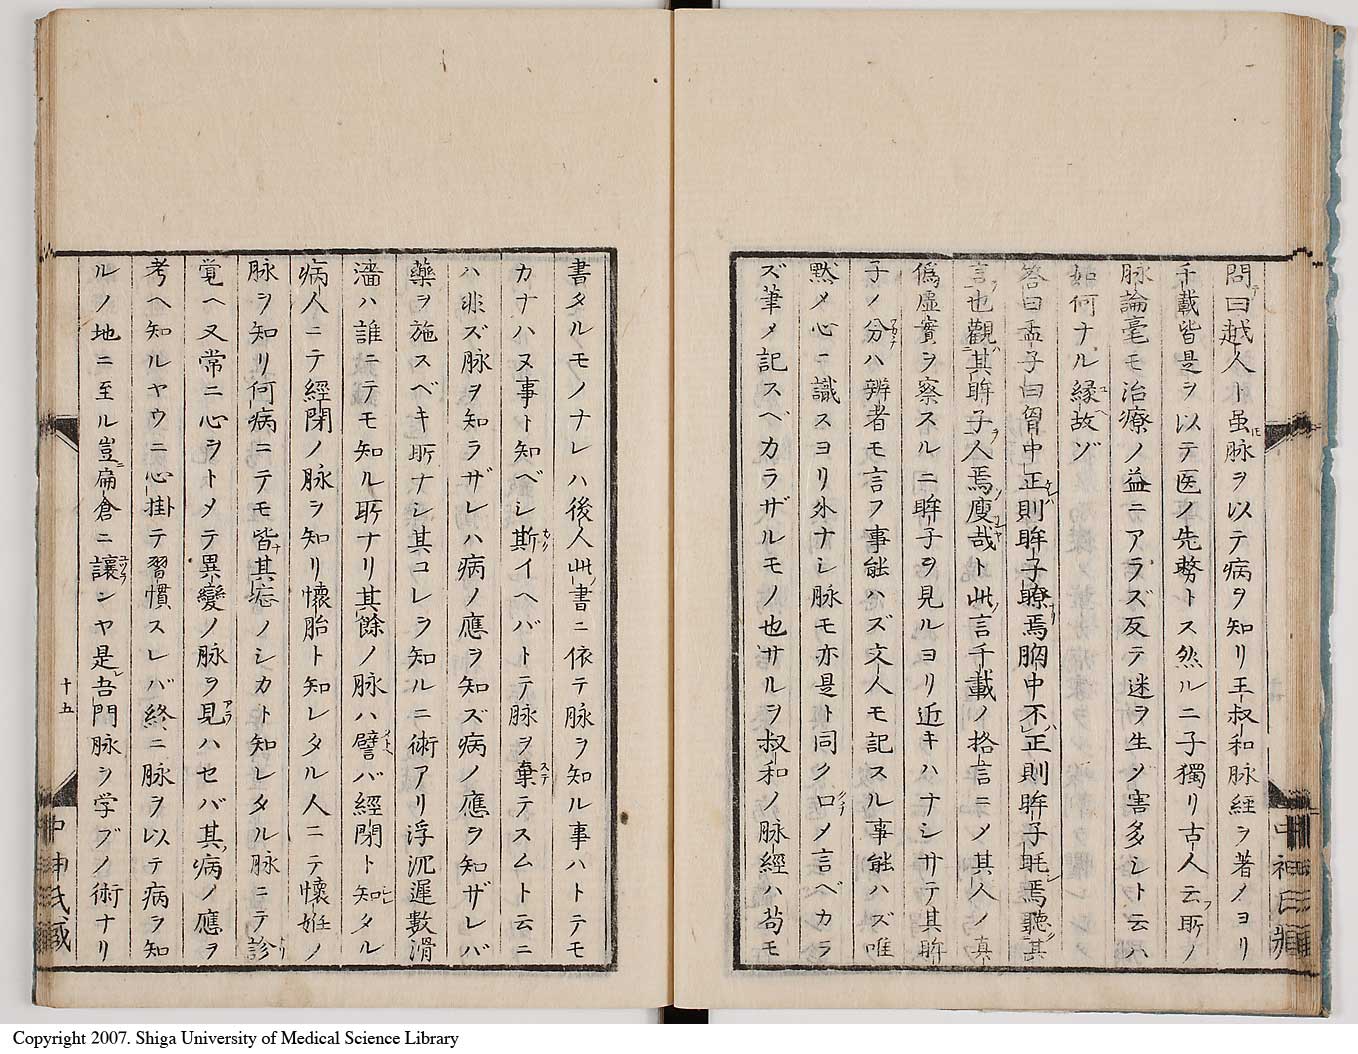 問曰越人ト虽脉ヲ以テ病ヲ知リ王叔和脉經ヲ著ノヨリ
千載皆是ヲ以テ医ノ先務トス然ルニ子獨リ古人云所ノ
脉論毫モ治療ノ益ニアラズ反テ迷ヲ生ジ害多シト云ハ
如何ナル縁故ゾ
答曰孟子曰胷中正則眸子瞭焉胸中不正則眸子眊焉聽其
言也觀其眸子人焉廋哉ト此言千載ノ格言ニメ其人ノ真
偽虚實ヲ察スルニ眸子ヲ見ルヨリ近キハナシサテ其眸
子ノ分ハ辨者モ言フ事能ハズ文人モ記スル事能ハズ唯
黙メ心ニ識スヨリ外ナシ脉モ亦是ト同ク口メ言ベカラ
ズ筆メ記スベカラザルモノ也サルヲ叔和ノ脉經ハ苟モ
書タルモノナレハ後人此書ニ依テ脉ヲ知ル事ハトテモ
カナハヌ事ト知ベシ斯イヘバトテ脉ヲ棄テスムト云ニ
ハ非ズ脉ヲ知ラザレハ病ノ應ヲ知ズ病ノ應ヲ知ザレバ
藥ヲ施スベキ所ナシ其コレヲ知ルニ術アリ浮沉遲數滑
濇ハ誰ニテモ知ル所ナリ其餘ノ脉ハ譬バ經閉ト知タル
病人ニテ經閉ノ脉ヲ知リ懷胎ト知レタル人ニテ懷妊ノ
脉ヲ知リ何病ニテモ皆其症ノシカト知レタル脉ニテ診
覚ヘ又常ニ心ヲトメテ異變ノ脉ヲ見ハセバ其病ノ應ヲ
考ヘ知ルヤウニ心掛テ習慣スレバ終ニ脉ヲ以テ病ヲ知
ルノ地ニ至ル豈扁倉ニ讓ンヤ是吾門脉ヲ学ブノ術ナリ
十五
中神氏藏
Copyright 2007. Shiga University of Medical Science Library